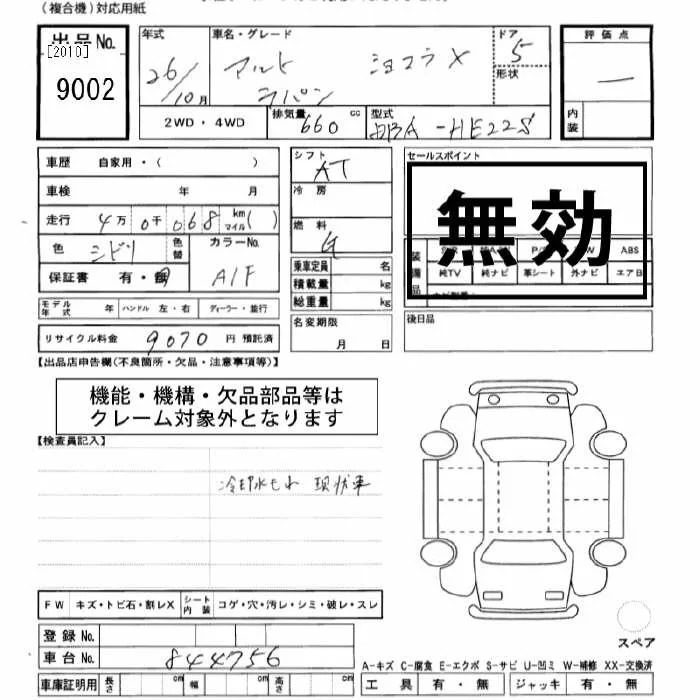 (複合機)対応用紙
出品No.
[2010]
9002
年式
26/10月
車名・グレード
アルト ラパン
ショコラX
ドア
5
形状
評価点
―
内装
2WD・4WD
排気量 660 cc
型式
DBA-HE22S
車歴 自家用・( )
車検 年 月
走行 4万 0千 068 km マイル( )
色
ミドリ
色替
カラーNo.
A1F
保証書 有・無
モデル年式 年 ハンドル 左・右 ディーラー・並行
リサイクル料金 9070 円 預託済
シフト
AT
冷房
燃料
ガ
乗車定員 名
積載量 kg
総重量 kg
名変期限
月 日
セールスポイント
無効
ABS
純TV 純ナビ 革シート 外ナビ エアB
後日品
【出品店申告欄(不良箇所・欠品・注意事項等)】
機能・機構・欠品部品等は
クレーム対象外となります
【検査員記入】
冷却水もれ 現状車
FW キズ・トビ石・割レX シート内装 コゲ・穴・汚レ・シミ・破レ・スレ
登録No.
車台No. 844756
車庫証明用 長さ cm 幅 cm 高さ cm
スペア
A-キズ C-腐食 E-エクボ S-サビ U-凹ミ W-補修 XX-交換済
工具 有・無 ジャッキ 有・無